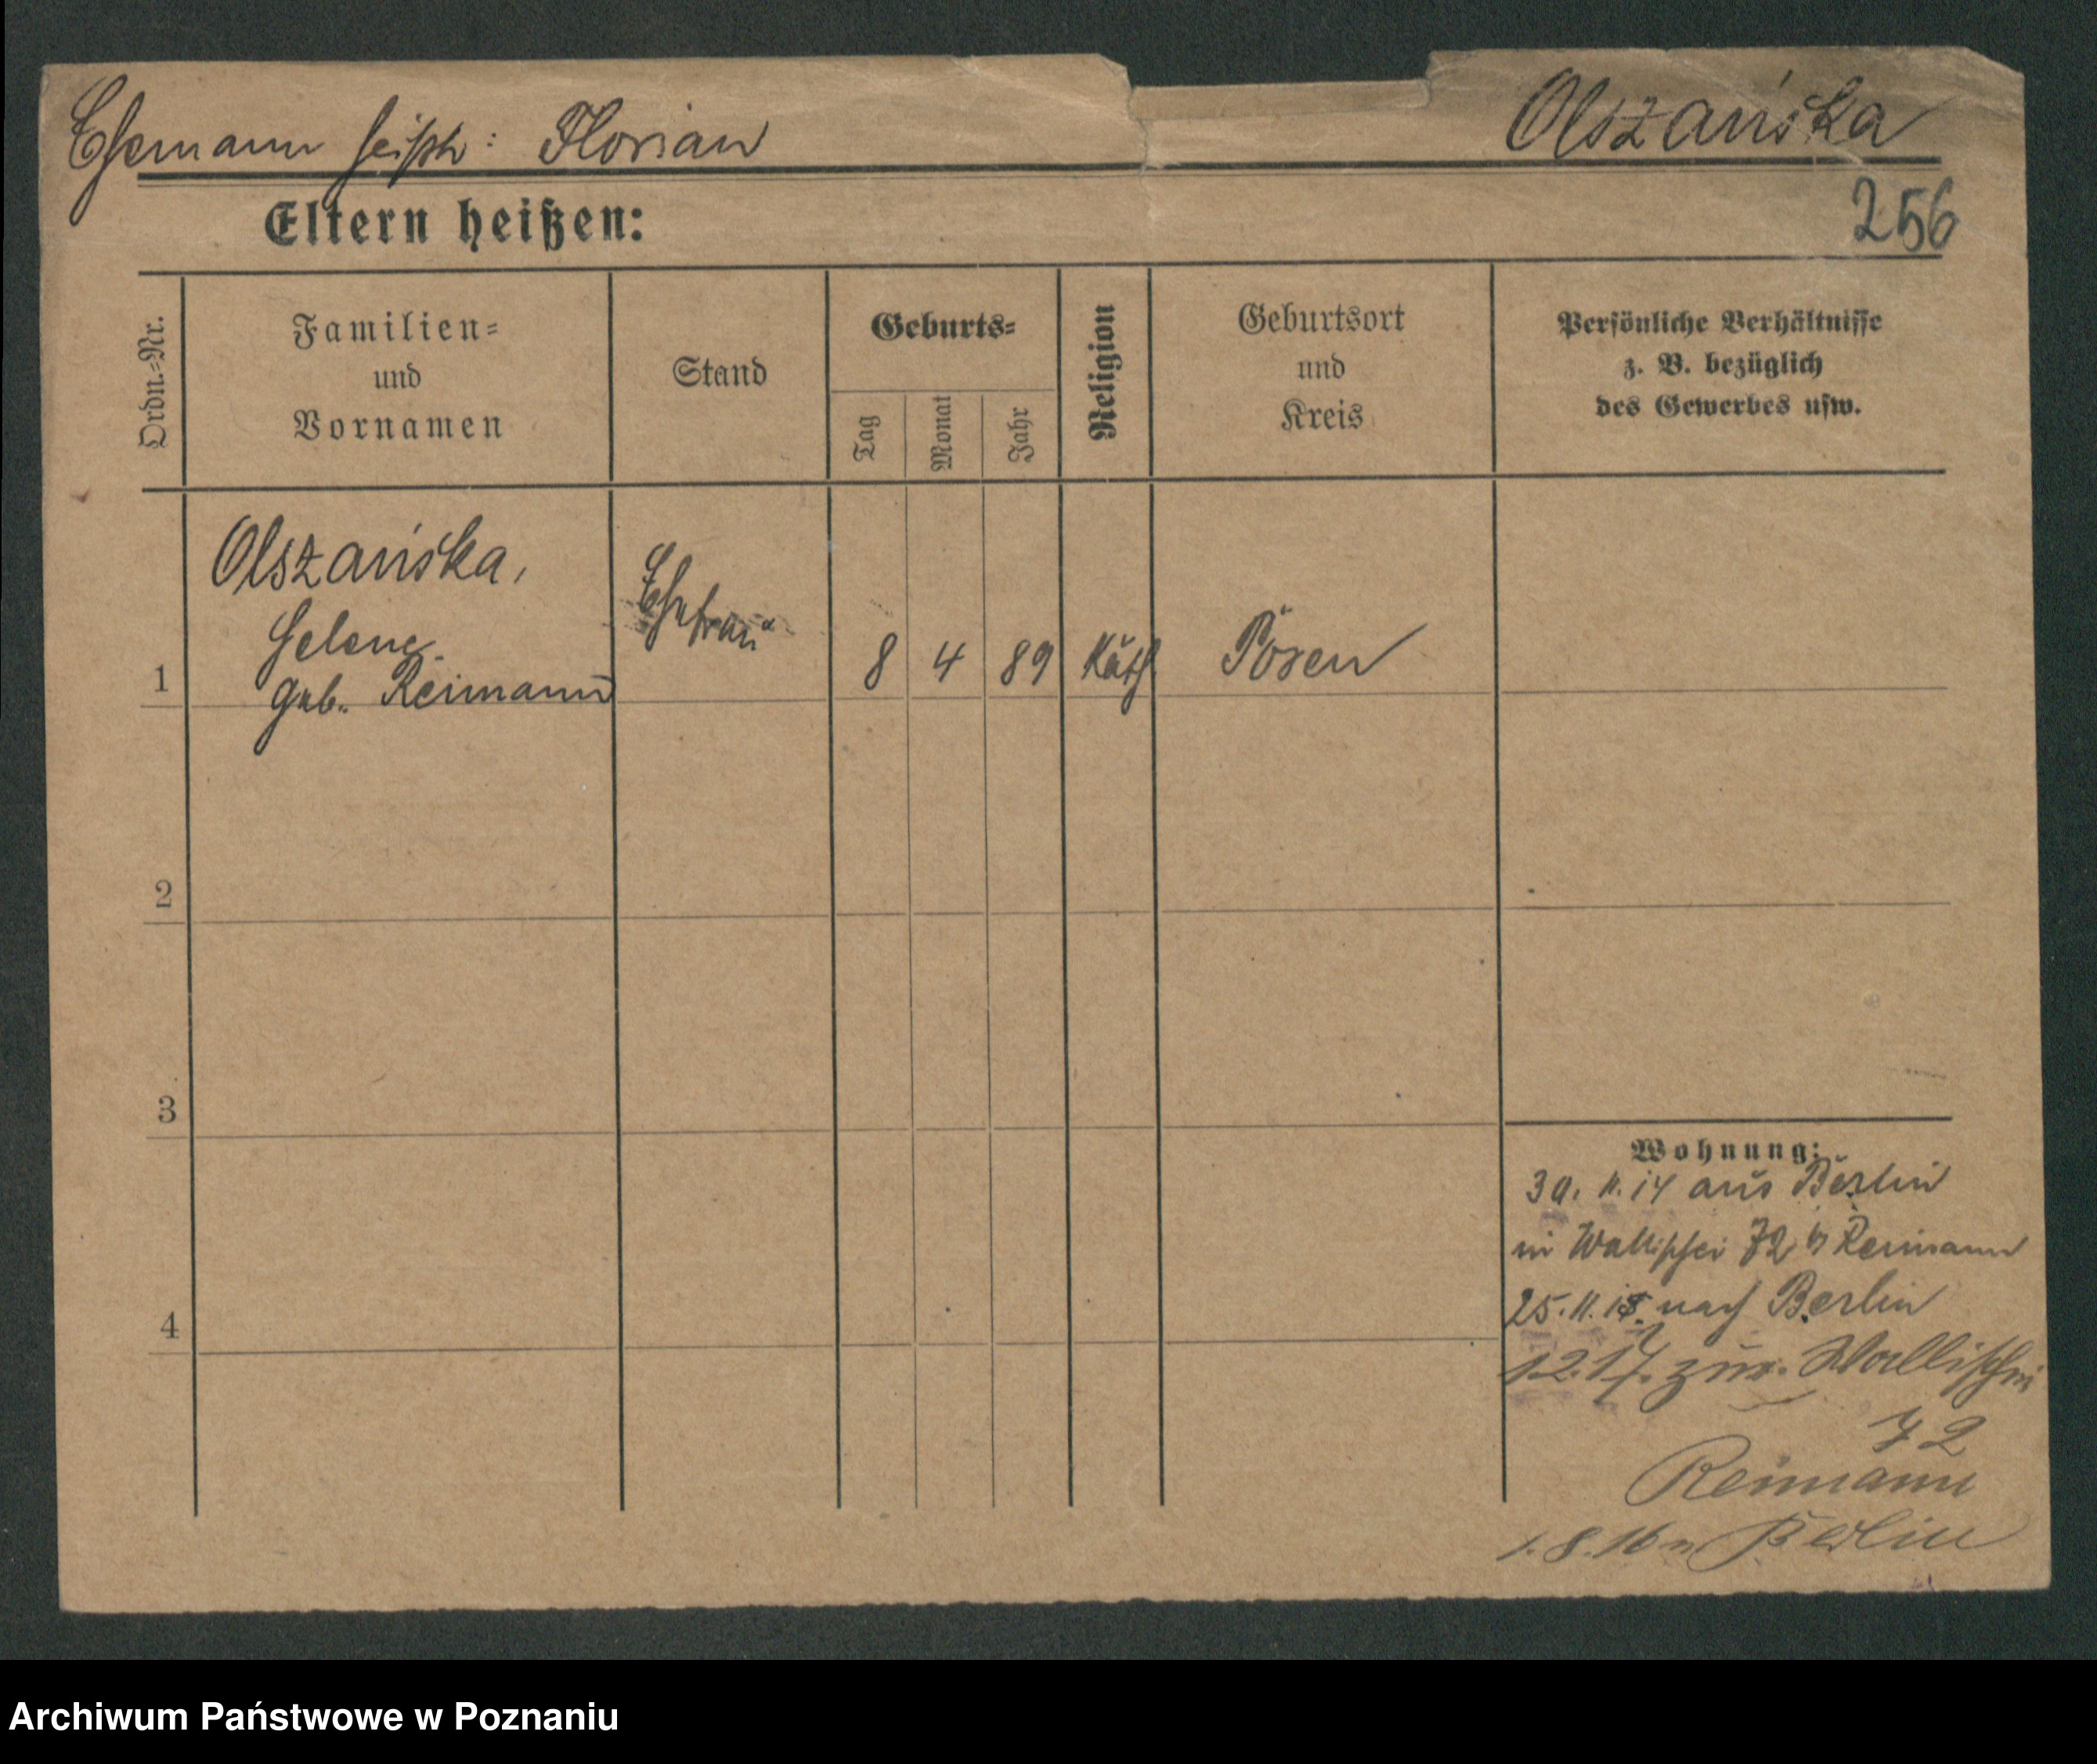 Ehemann heißt: Florian
Olszańska
256
Eltern heißen:
Ordn.=Nr.
Familien=
und
Vornamen
Stand
Geburts=
Tag
Monat
Jahr
Religion
Geburtsort
und
Kreis
Persönliche Verhältnisse
z. B. bezüglich
des Gewerbes usw.
1
Olszańska,
Helene
geb. Reimann
Ehefrau
8
4
89
Kath.
Posen
2
3
4
Wohnung:
30. 11. 14 aus Berlin
in Wallischei 72 b Reimann
25. 11. nach Berlin
zur. Wallischei
72
Reimann
1. 8. 16 n Berlin
Archiwum Państwowe w Poznaniu